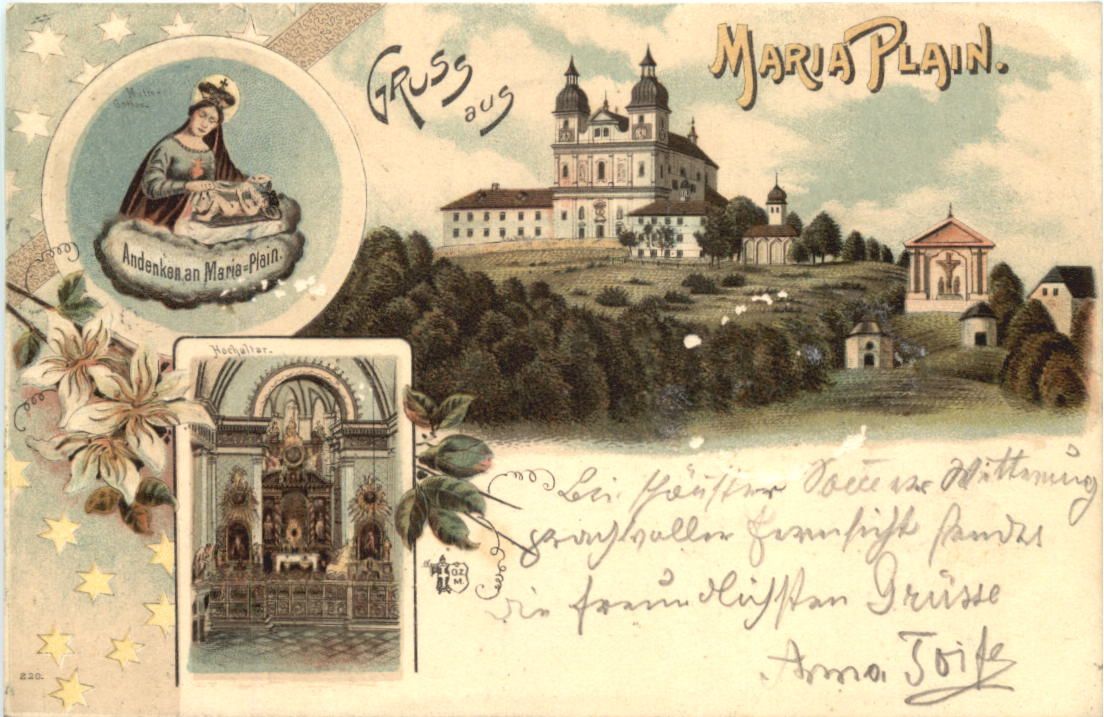 Gruss
aus
Maria Plain.
Mutter
Gottes.
Andenken an Maria=Plain.
Hochaltar.
O.Z.
M.
Bei schönster Witterung
prachtvoller Fernsicht sendet
die freundlichsten Grüsse
Anna
220.